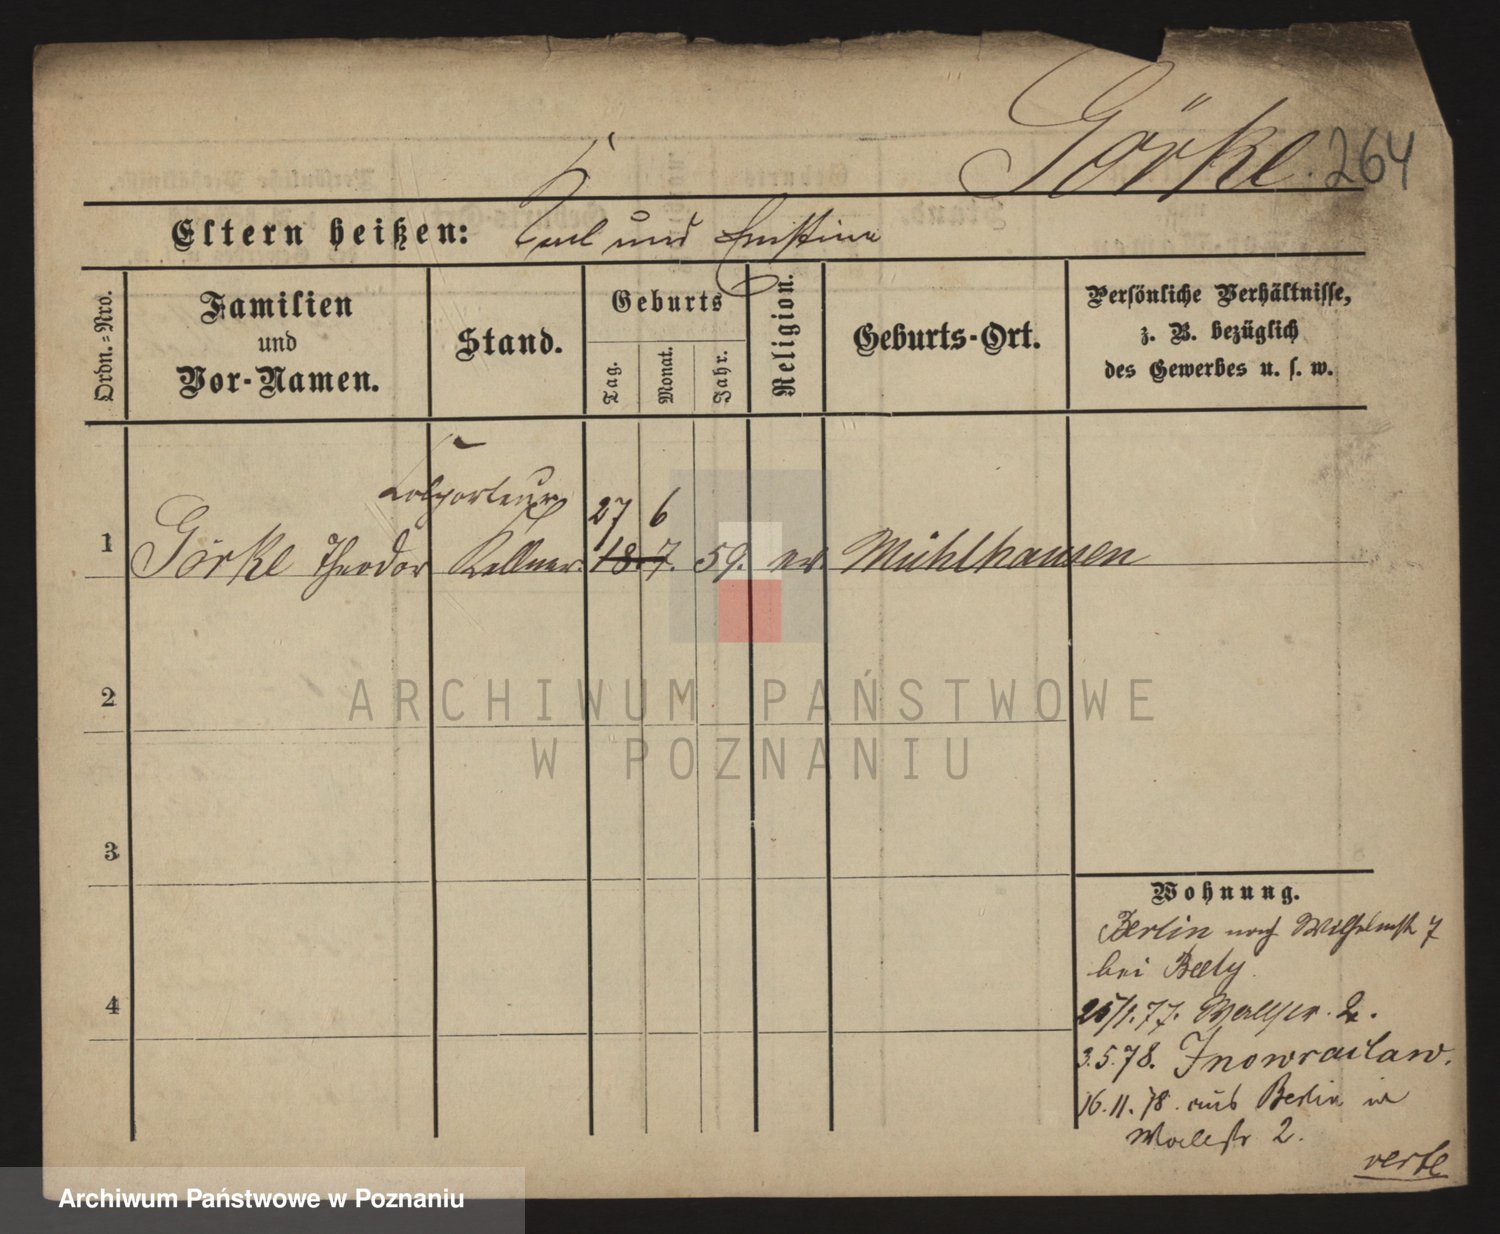 Görke. 264
Eltern heißen: Carl und Christine
Ordn.-Nro.
Familien
und
Vor-Namen.
Stand.
Geburts
Tag.
Monat.
Jahr.
Religion.
Geburts-Ort.
Persönliche Verhältnisse,
z. B. bezüglich
des Gewerbes u. s. w.
Kolporteur
27 6
1 Görke Theodor Kellner. 18. 7. 59. ev. Mühlhausen
2
3
4
Wohnung.
Berlin nach Wilhelmstr 7
bei
25/1.77. Wallstr. 2.
3.5.78. Inowraclaw.
16.11.78. aus Berlin in
Wallstr 2.
verte
ARCHIWUM PAŃSTWOWE
W POZNANIU
Archiwum Państwowe w Poznaniu